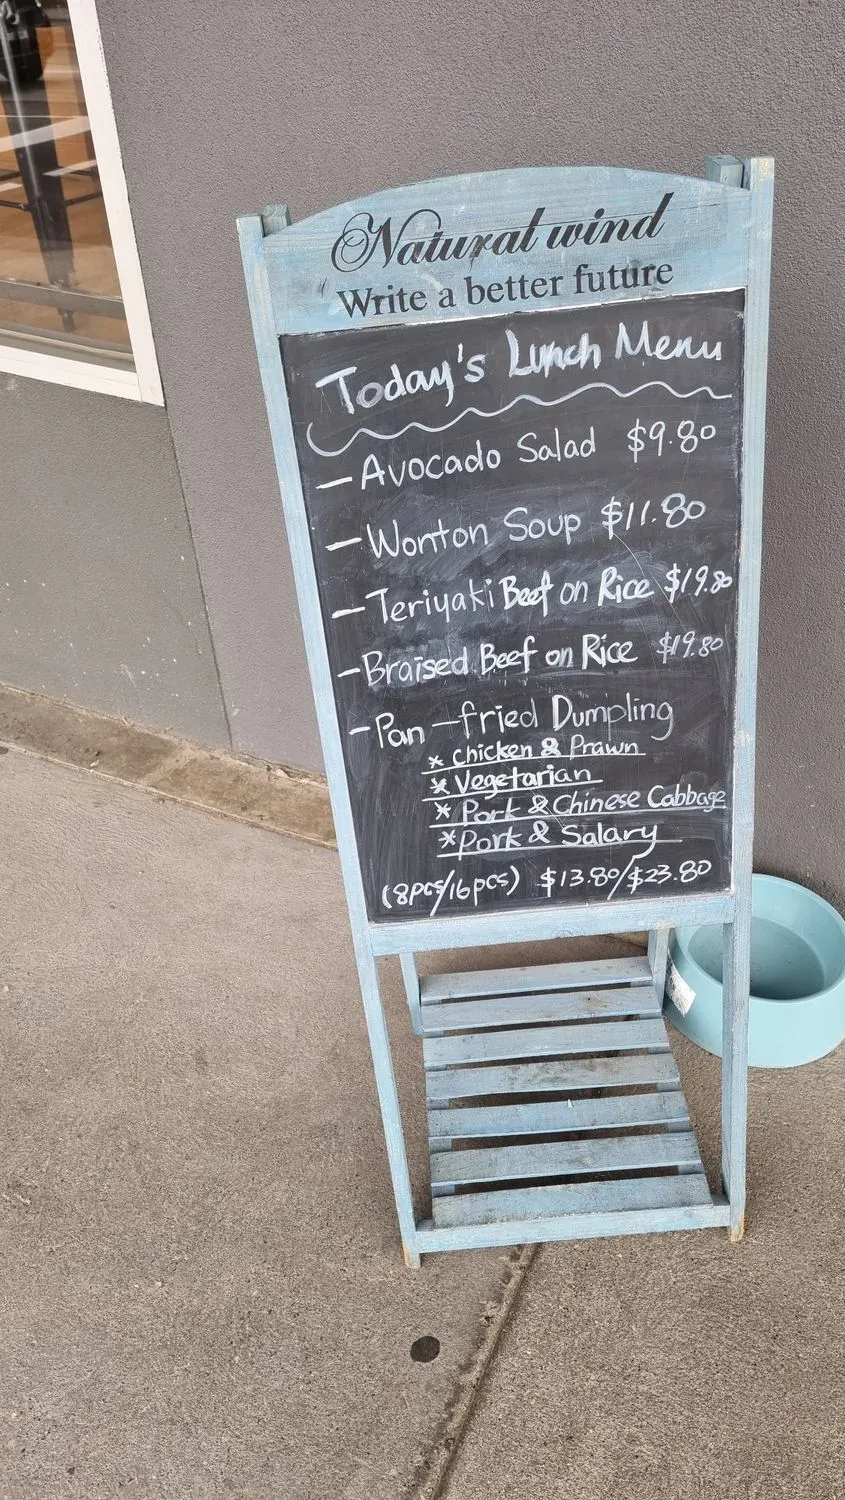 Natural wind
Write a better future
Today's Lunch Menu
- Avocado Salad $9.80
- Wonton Soup $11.80
- Teriyaki Beef on Rice $19.80
- Braised Beef on Rice $19.80
- Pan-fried Dumpling
* Chicken & Prawn
* Vegetarian
* Pork & Chinese Cabbage
* Pork & Salary
(8pcs/16pcs) $13.80/$23.80